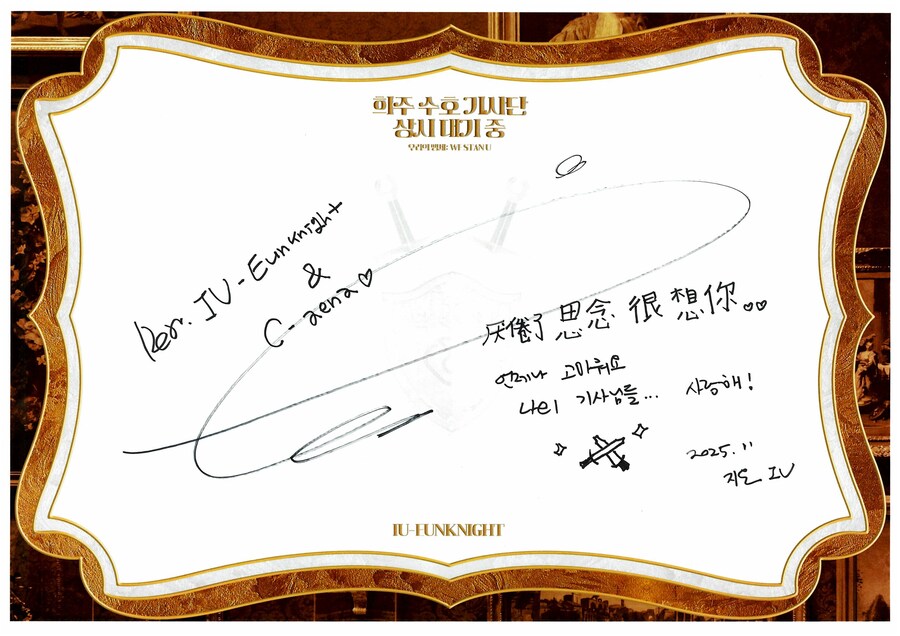 희주 수호 기사단
상시 대기 중
우리의 명예: WE STAN U
Dear. IU-Eunknight
&
C-aena♡
厌倦了 思念 很 想你..♡♡
언제나 고마워요
나의 기사님들... 사랑해!
2025.11
지은 IU
IU-EUNKNIGHT